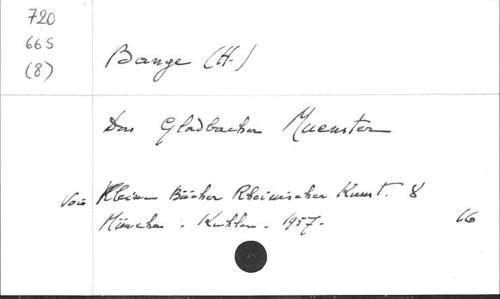 720
665
(8)
Bange (H.)
Das Gladbacher Muenster
Voir Kleine Bücher Rheinischer Kunst. 8
München. Kuhlen. 1957.
66